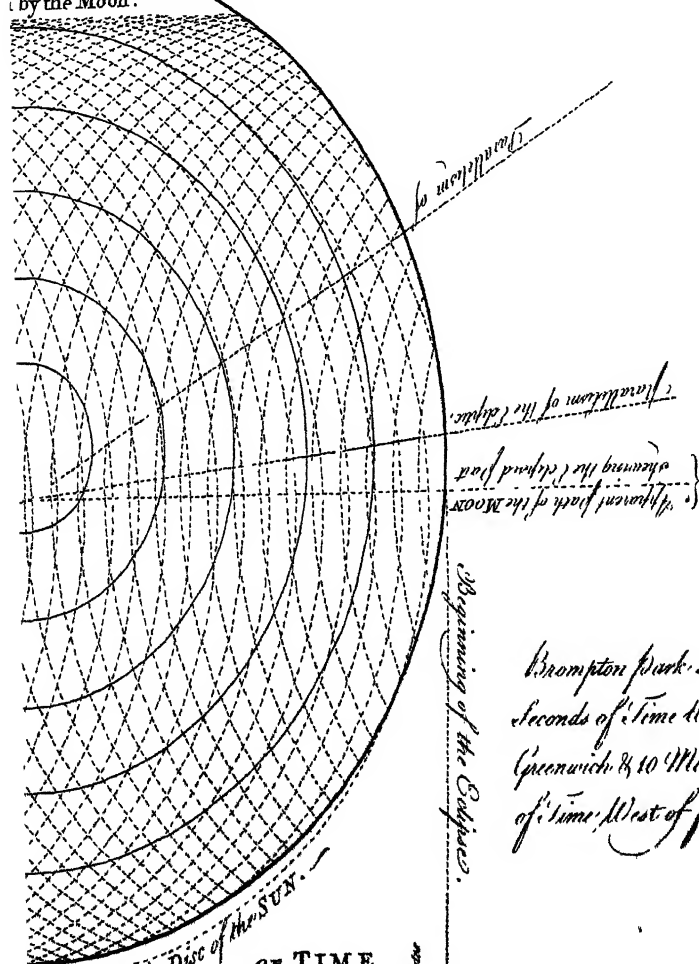 by the Moon.
Parallelism of
Parallelism of the Ecliptic.
Apparent path of the MOON
Shewing the Eclipsed Part
Beginning of the Eclipse.
Brompton Park
Seconds of Time
Greenwich & 10
of Time West of
Disc of the SUN.
OF TIME